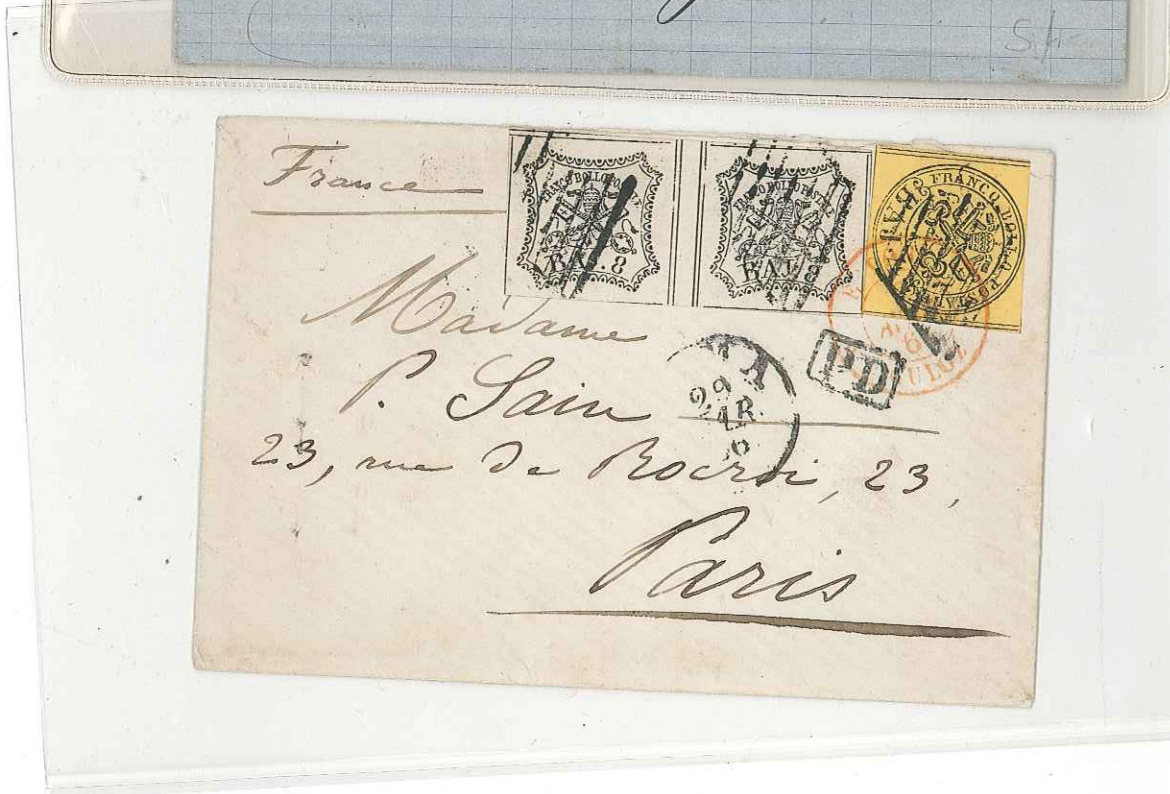 France
FRANCO BOLLO POSTALE
BAJ. 8
FRANCO BOLLO POSTALE
BAJ. 8
FRANCO BOLLO POSTALE
BAJ
Madame
PD
P. Sain
29
23, rue de Rocroi, 23,
Paris